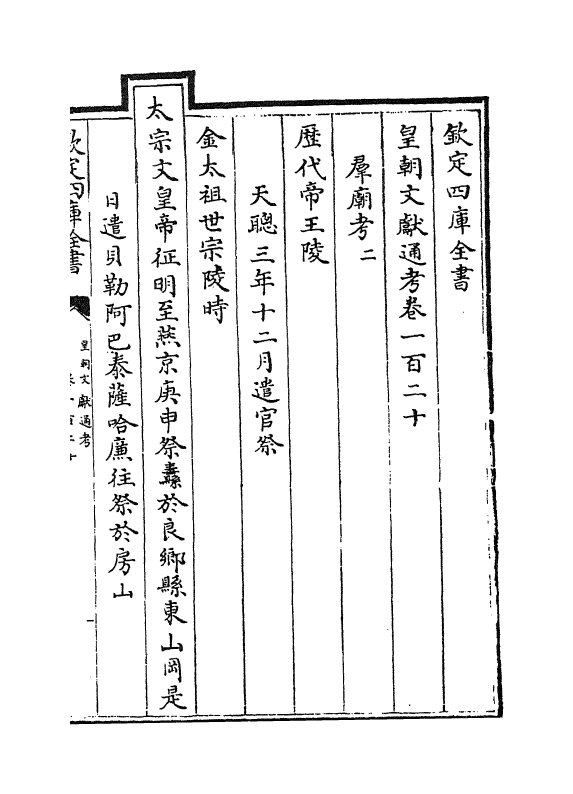 欽定四庫全書
皇朝文獻通考卷一百二十
羣廟考二
歷代帝王陵
天聰三年十二月遣官祭
金太祖世宗陵時
太宗文皇帝征明至燕京庚申祭纛於良鄉縣東山岡是
日遣貝勒阿巴泰薩哈廉往祭於房山
欽定四庫全書
皇朝文獻通考
卷一百二十
一